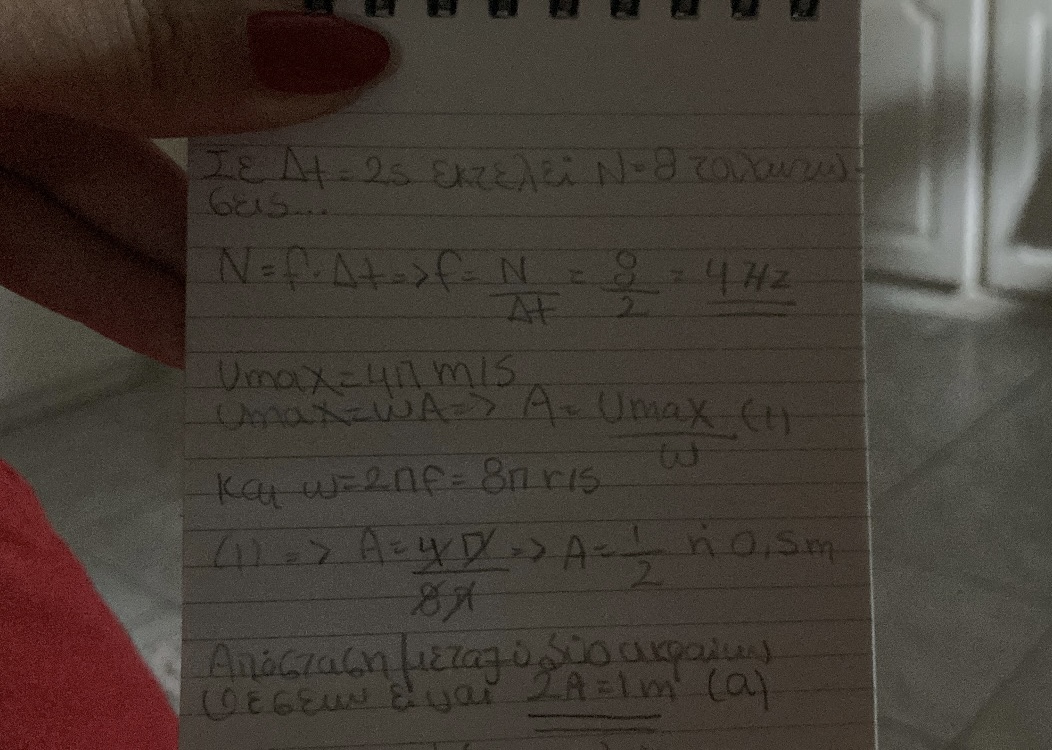 Σε Δt = 2s εκτελεί N=8 ταλαντώ-
σεις...
N = f·Δt => f = N/Δt = 8/2 = 4 Hz
Umax = 4π m/s
Umax = ωA => A = Umax/ω (1)
Και ω = 2πf = 8π r/s
(1) => A = 4π/8π => A = 1/2 ή 0,5m
Απόσταση μεταξύ δύο ακραίων
θέσεων είναι 2A = 1m (α)